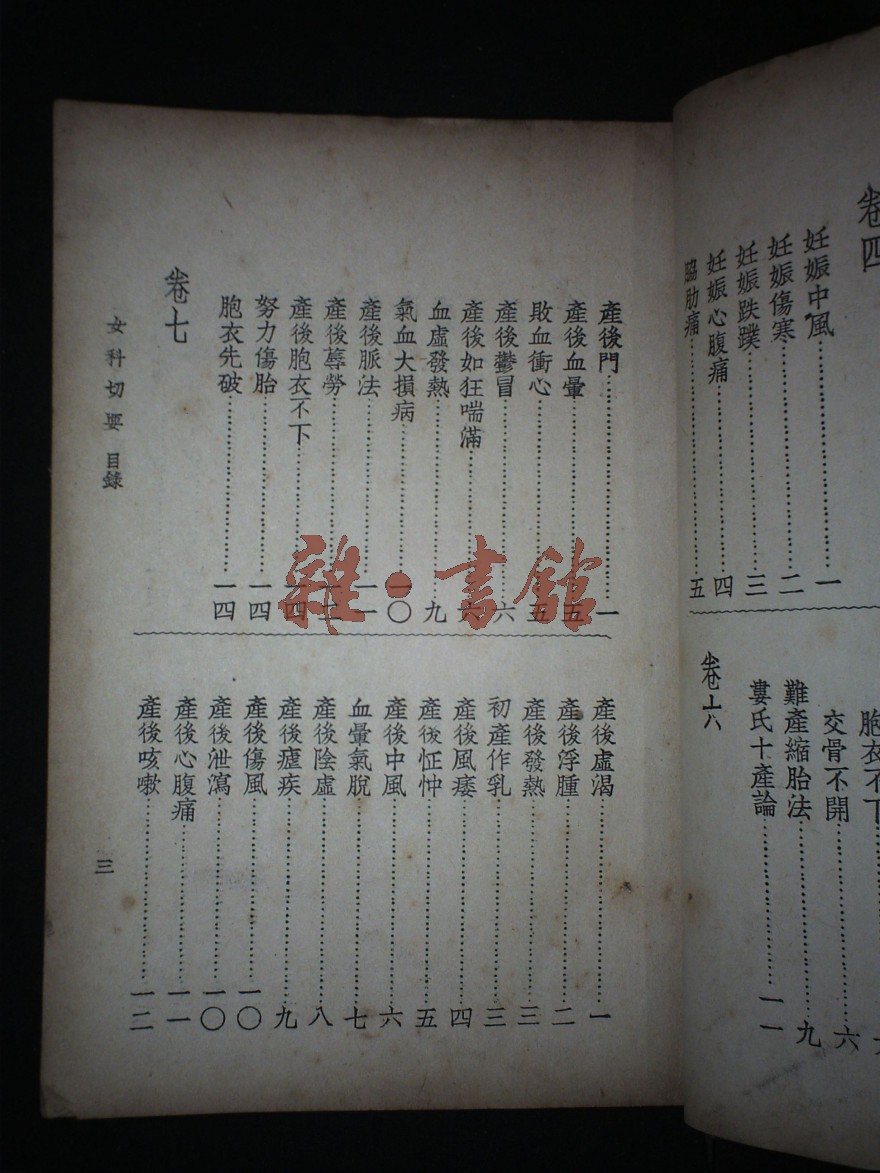 卷四
妊娠中風 一
妊娠傷寒 二
妊娠跌蹼 三
妊娠心腹痛 四
脇肋痛 五
胞衣不下
交骨不開 六
難產縮胎法 九
婁氏十產論 一一
卷六
產後門 一
產後血暈 五
敗血衝心 五
產後鬱冒 六
產後如狂喘滿 六
血虛發熱 九
氣血大損病 一〇
產後脈法 一一
產後蓐勞
產後胞衣不下 一四
努力傷胎 一四
胞衣先破 一四
卷七
產後虛渴 一
產後浮腫 二
產後發熱 三
初產作乳 三
產後風痿 四
產後怔忡 五
產後中風 六
血暈氣脫 七
產後陰虛 八
產後瘧疾 九
產後傷風 一〇
產後泄瀉 一〇
產後心腹痛 一一
產後咳嗽 一二
女科切要 目錄
三
雜·書館